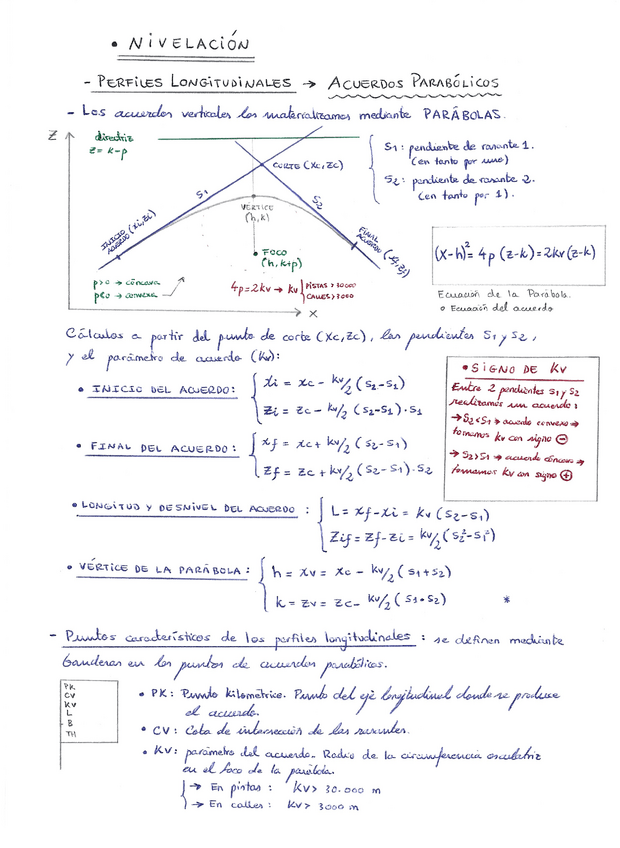 • NIVELACIÓN
- PERFILES LONGITUDINALES → ACUERDOS PARABÓLICOS
- Los acuerdos verticales los materializamos mediante PARÁBOLAS.
Z
directriz
z = k-p
CORTE (xc, zc)
S1
S2
VÉRTICE
(h,k)
INICIO
ACUERDO (xi, zi)
FINAL
ACUERDO (xf, zf)
FOCO
(h, k+p)
p>0 → cóncava
p<0 → convexa
4p = 2kv → kv
PISTAS > 30000
CALLES > 3000
X
S1: pendiente de rasante 1.
(en tanto por uno)
S2: pendiente de rasante 2.
(en tanto por 1).
(x-h)² = 4p (z-k) = 2kv (z-k)
Ecuación de la Parábola.
o Ecuación del acuerdo
Cálculos a partir del punto de corte (xc, zc), las pendientes S1 y S2,
y el parámetro de acuerdo (kv):
• INICIO DEL ACUERDO:
xi = xc - kv/2 (S2-S1)
zi = zc - kv/2 (S2-S1)·S1
• FINAL DEL ACUERDO:
xf = xc + kv/2 (S2-S1)
zf = zc + kv/2 (S2-S1)·S2
• SIGNO DE KV
Entre 2 pendientes S1 y S2
realizamos un acuerdo:
→ S2<S1 → acuerdo convexo →
tomamos kv con signo ⊖
→ S2>S1 → acuerdo cóncavo →
tomamos kv con signo ⊕
• LONGITUD Y DESNIVEL DEL ACUERDO:
L = xf - xi = kv (S2-S1)
Zif = zf - zi = kv/2 (S2²-S1²)
• VÉRTICE DE LA PARÁBOLA:
h = xv = xc - kv/2 (S1+S2)
k = zv = zc - kv/2 (S1·S2)
*
- Puntos característicos de los perfiles longitudinales: se definen mediante
banderas en los puntos de acuerdos parabólicos.
PK
CV
KV
L
B
TH
• PK: Punto Kilométrico. Punto del eje longitudinal donde se produce
el acuerdo.
• CV: Cota de intersección de las rasantes.
• KV: parámetro del acuerdo. Radio de la circunferencia osculatriz
en el foco de la parábola.
→ En pistas: KV > 30.000 m
→ En calles: KV > 3000 m